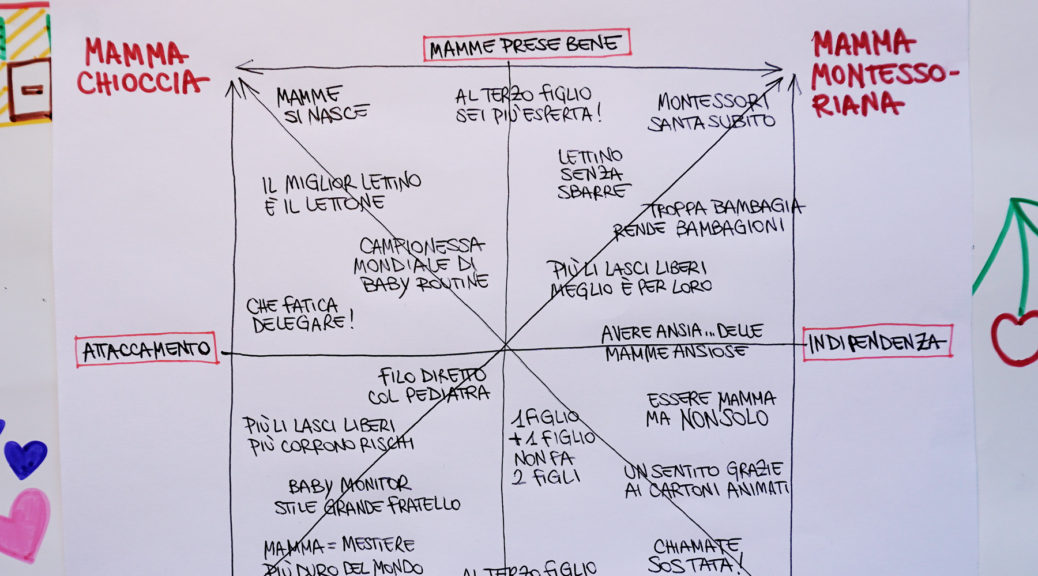 MAMMA
CHIOCCIA
MAMME PRESE BENE
MAMMA
MONTESSO-
RIANA
MAMME
SI NASCE
AL TERZO FIGLIO
SEI PIÙ ESPERTA!
MONTESSORI
SANTA SUBITO
LETTINO
SENZA
SBARRE
IL MIGLIOR LETTINO
È IL LETTONE
TROPPA BAMBAGIA
RENDE BAMBAGIONI
CAMPIONESSA
MONDIALE DI
BABY ROUTINE
PIÙ LI LASCI LIBERI
MEGLIO È PER LORO
CHE FATICA
DELEGARE!
ATTACCAMENTO
AVERE ANSIA...DELLE
MAMME ANSIOSE
INDIPENDENZA
FILO DIRETTO
COL PEDIATRA
ESSERE MAMMA
MA NON SOLO
PIÙ LI LASCI LIBERI
PIÙ CORRONO RISCHI
1 FIGLIO
+ 1 FIGLIO
NON FA
2 FIGLI
BABY MONITOR
STILE GRANDE FRATELLO
UN SENTITO GRAZIE
AI CARTONI ANIMATI
MAMMA = MESTIERE
PIÙ DURO DEL MONDO
CHIAMATE
SOS TATA!
AL TERZO FIGLIO